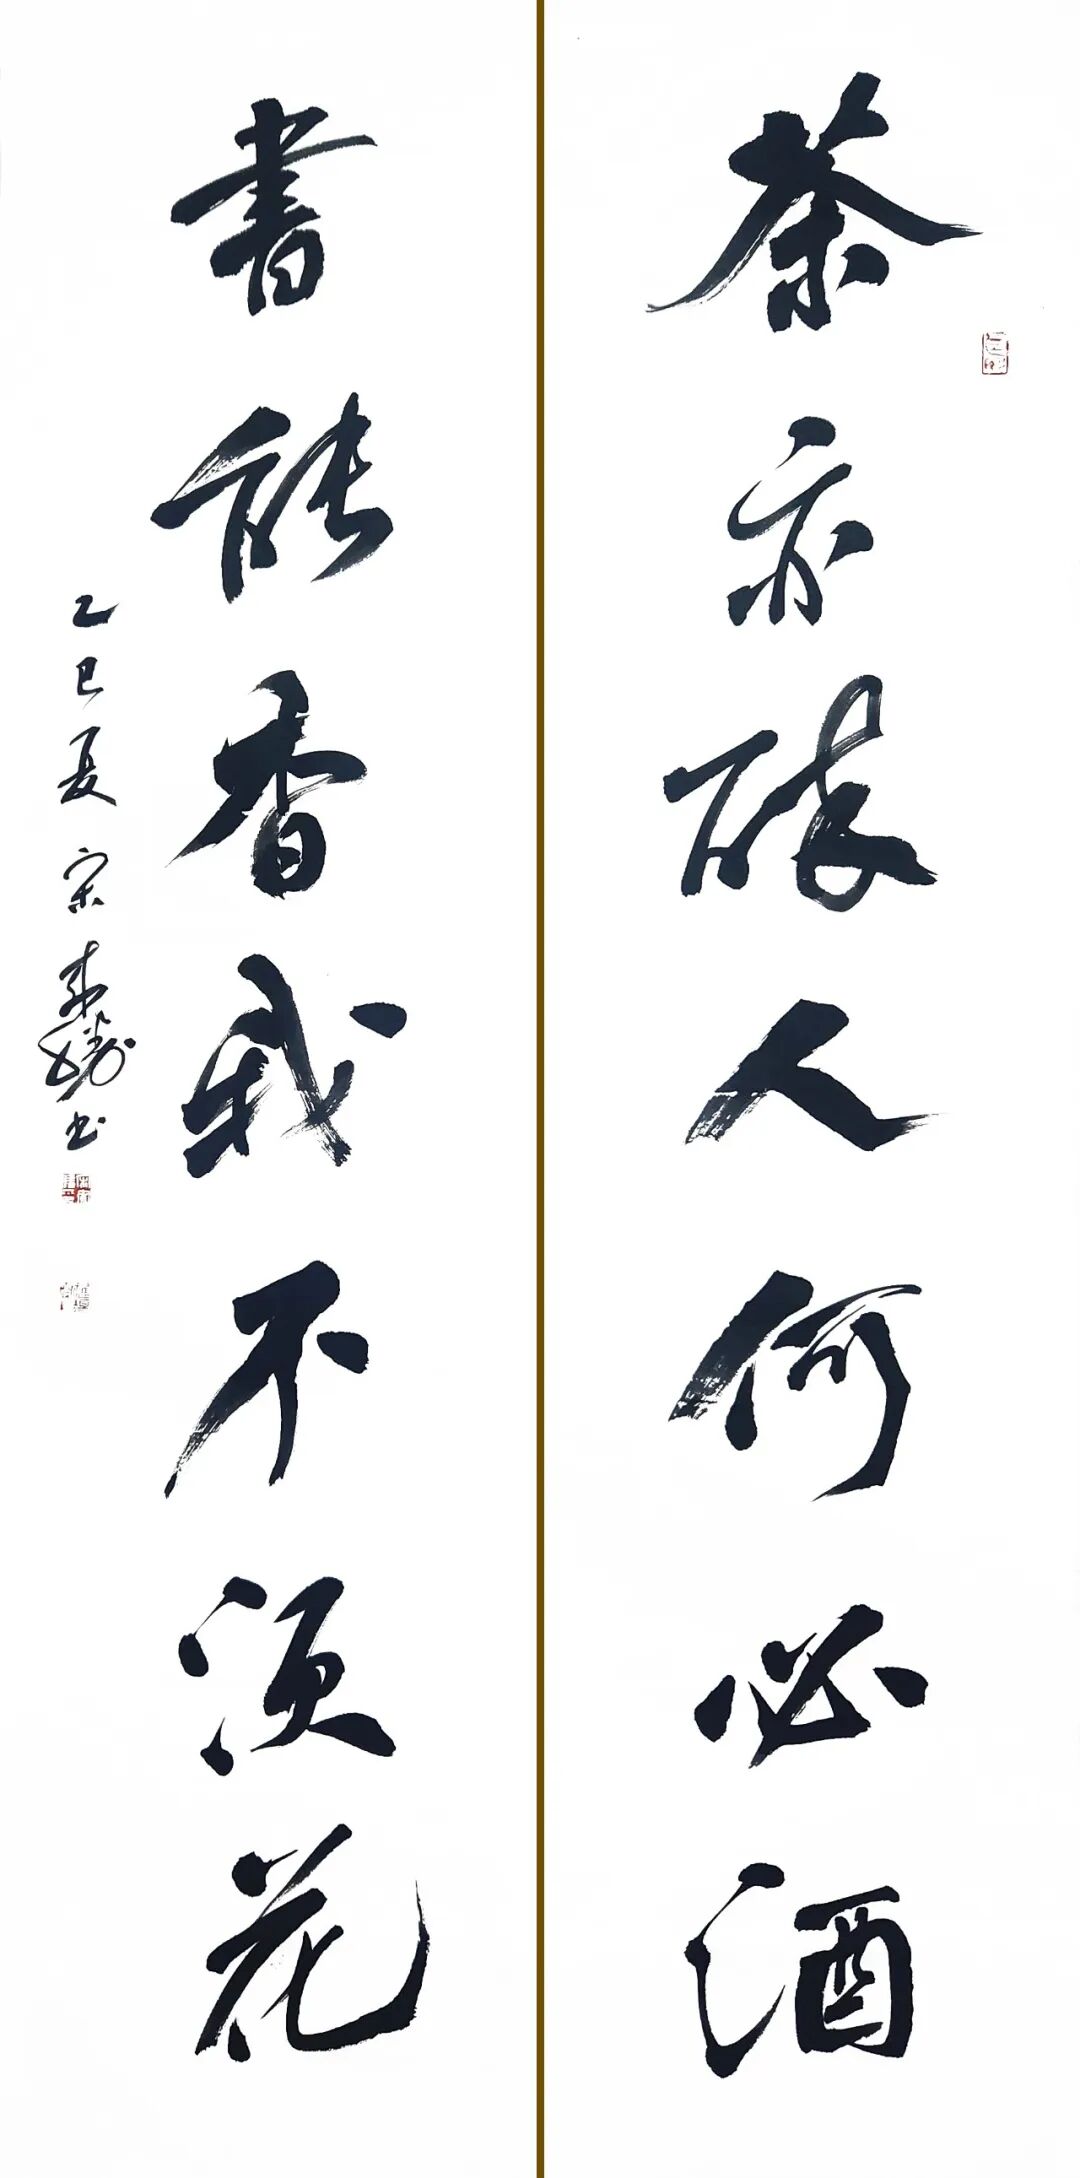 茶亦醉人何必酒
書能香我不須花
乙巳夏 宋來勝书